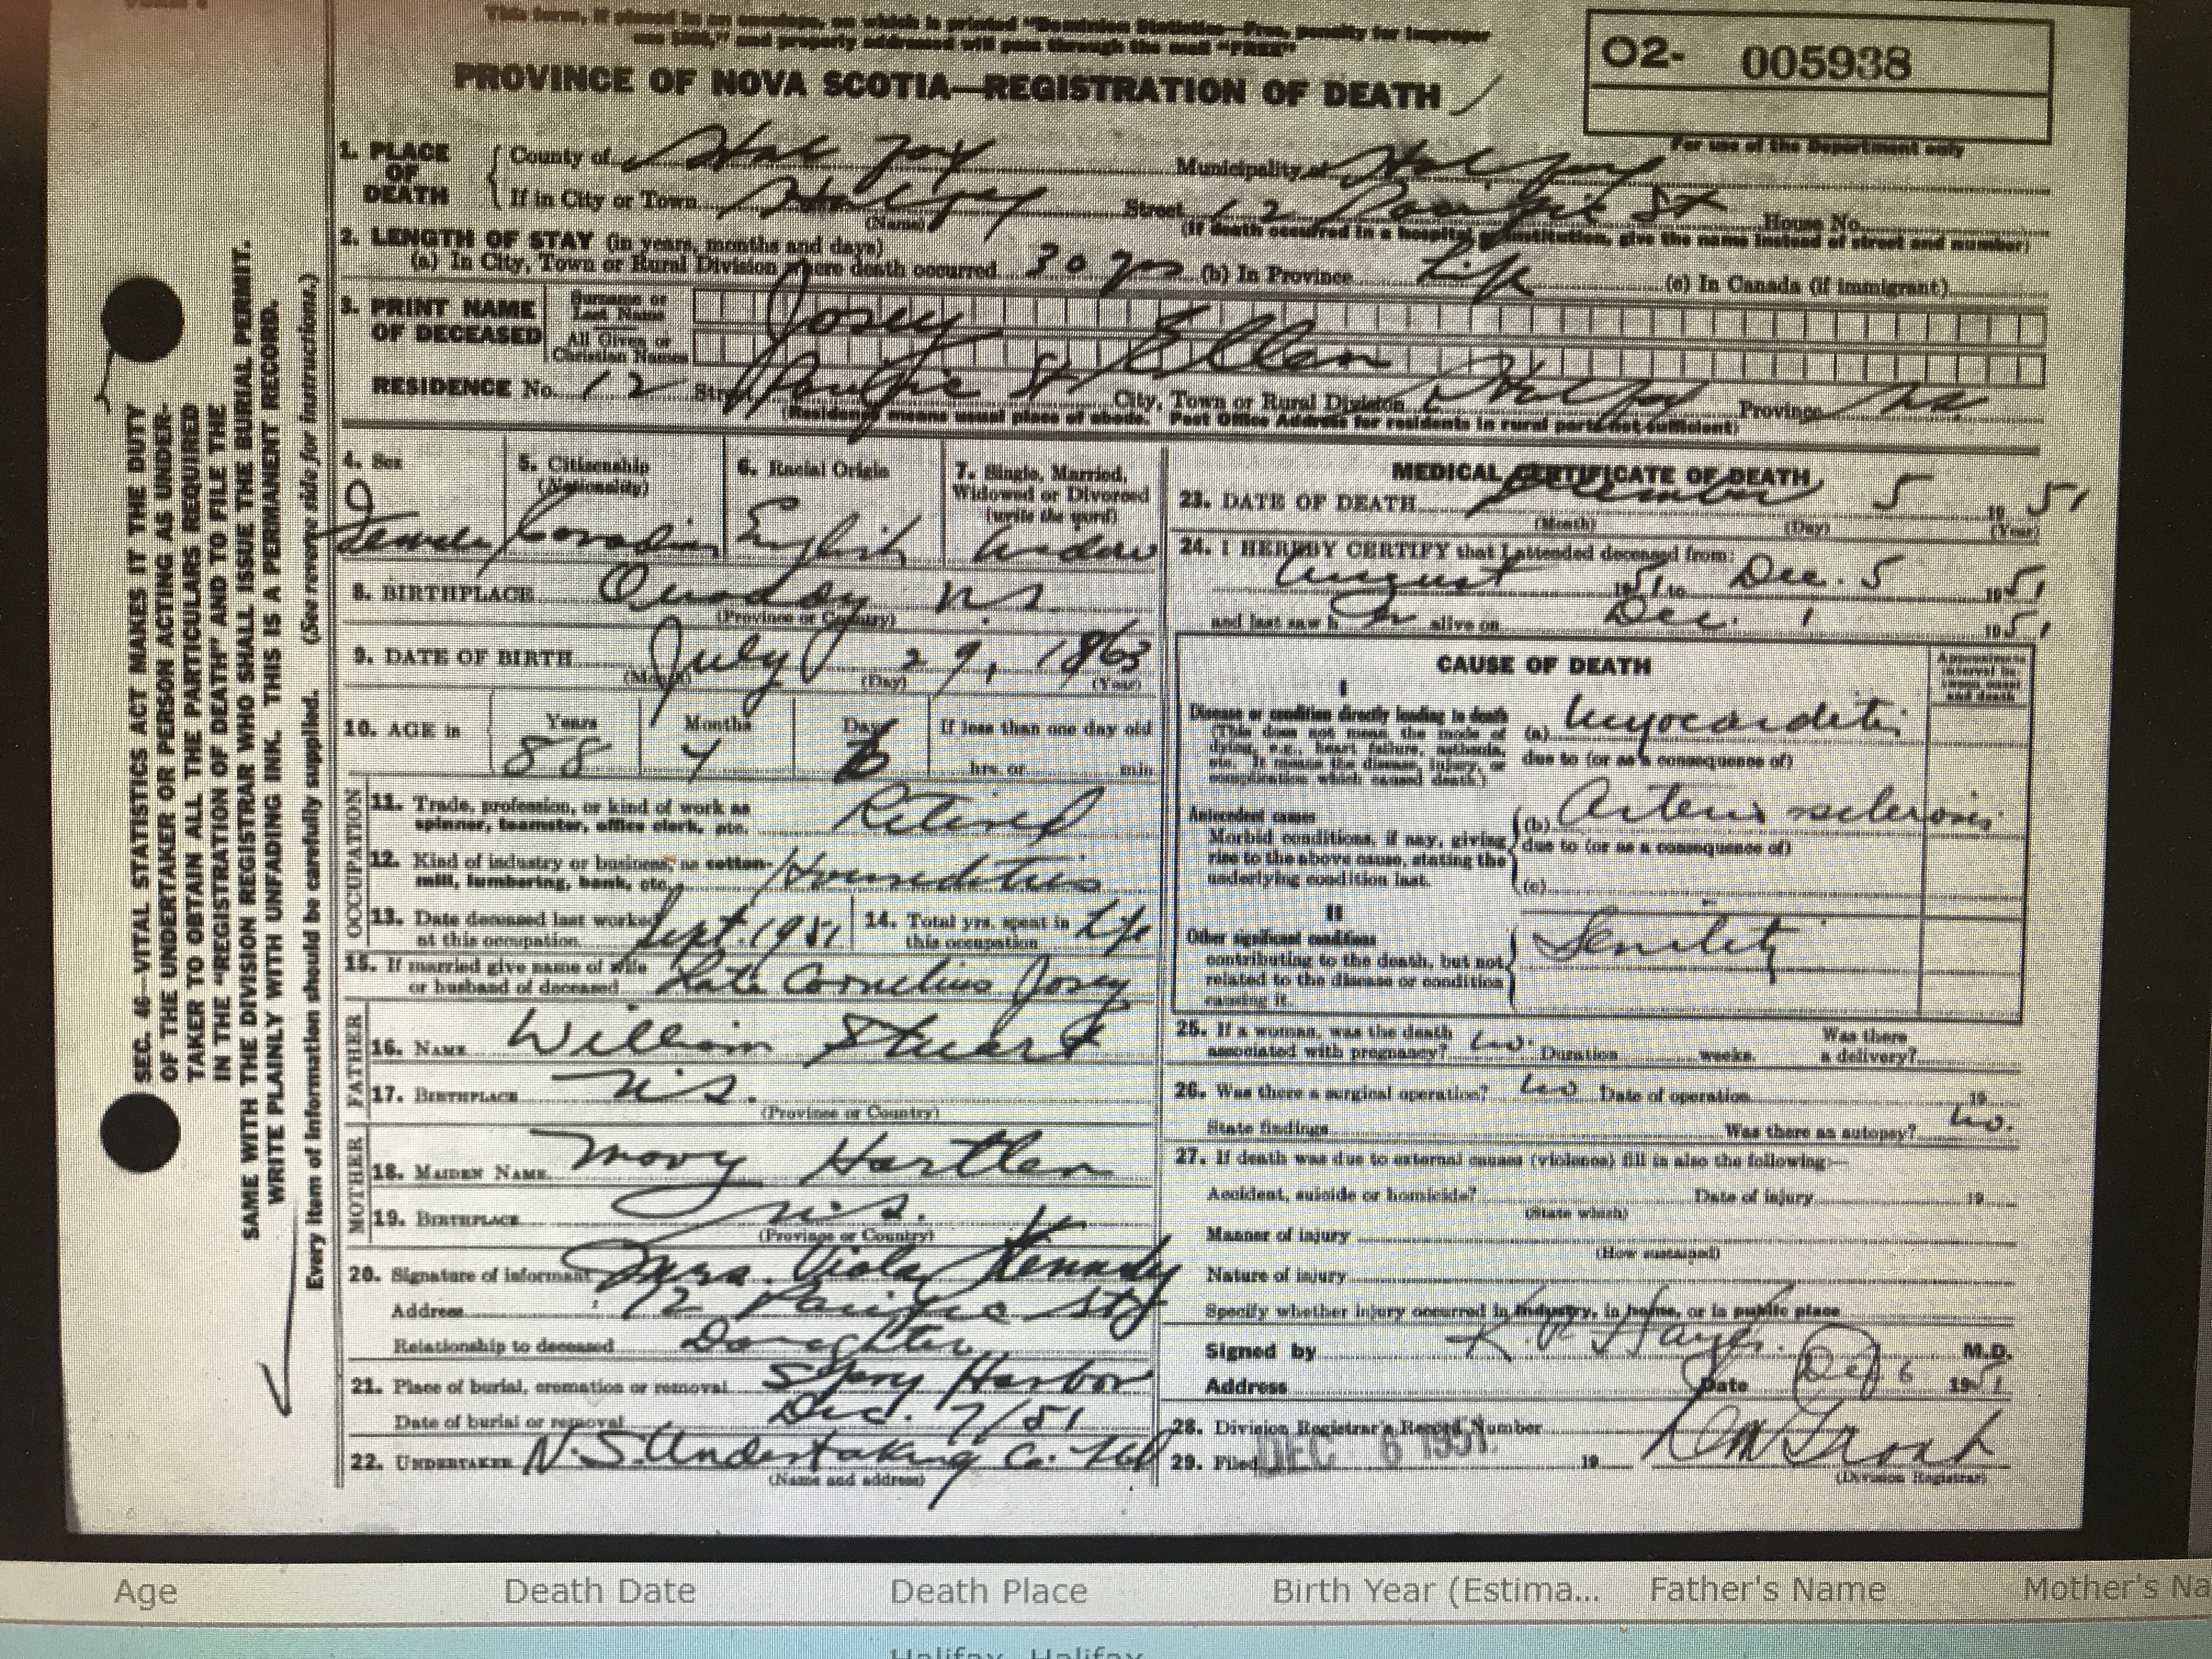 This form, if placed in an envelope, on which is printed "Dominion Statistics—Free, penalty for improper
use $300," and properly addressed will pass through the mail "FREE"
PROVINCE OF NOVA SCOTIA—REGISTRATION OF DEATH
O2- 005938
For use of the Department only
1. PLACE OF DEATH
County of Halifax Municipality of Halifax
If in City or Town Halifax Street 12 St House No.
(Name) (If death occurred in a hospital or institution, give the name instead of street and number)
2. LENGTH OF STAY (in years, months and days)
(a) In City, Town or Rural Division where death occurred 30 yrs (b) In Province Life (c) In Canada (if immigrant)
3. PRINT NAME OF DECEASED
Surname or Last Name Josey
All Given or Christian Names Ellen
RESIDENCE No. 12 Street St City, Town or Rural Division Halifax Province N.S.
(Residence means usual place of abode. Post Office Address for residents in rural parts not sufficient)
4. Sex
Female
5. Citizenship
(Nationality)
Canadian
6. Racial Origin
English
7. Single, Married,
Widowed or Divorced
(write the word)
Widow
8. BIRTHPLACE N S
(Province or Country)
9. DATE OF BIRTH July 29, 1863
(Month) (Day) (Year)
10. AGE in
Years 88
Months 4
Days 6
If less than one day old
hrs. or min.
OCCUPATION
11. Trade, profession, or kind of work as
spinner, teamster, office clerk, etc. Retired
12. Kind of industry or business, as cotton-
mill, lumbering, bank, etc.
13. Date deceased last worked
at this occupation Sept. 1951
14. Total yrs. spent in
this occupation Life
15. If married give name of wife
or husband of deceased Late Cornelius Josey
FATHER
16. NAME William Stuart
17. BIRTHPLACE N.S.
(Province or Country)
MOTHER
18. MAIDEN NAME Mary Hartlen
19. BIRTHPLACE N.S.
(Province or Country)
20. Signature of informant Mrs. Viola Kennedy
Address 12 St
Relationship to deceased Daughter
21. Place of burial, cremation or removal Harbor
Date of burial or removal Dec. 7/51
22. UNDERTAKER N.S. Undertaking Co. Ltd
(Name and address)
MEDICAL CERTIFICATE OF DEATH
23. DATE OF DEATH December 5 1951
(Month) (Day) (Year)
24. I HEREBY CERTIFY that I attended deceased from:
August 1951 to Dec. 5 1951
and last saw h er alive on Dec. 1 1951
CAUSE OF DEATH
Approximate
interval be-
tween onset
and death
I
Disease or condition directly leading to death
(This does not mean the mode of
dying, e.g., heart failure, asthenia,
etc. It means the disease, injury, or
complication which caused death)
(a) Myocarditis
due to (or as a consequence of)
Antecedent causes
Morbid conditions, if any, giving
rise to the above cause, stating the
underlying condition last.
(b) Arteriosclerosis
due to (or as a consequence of)
(c)
II
Other significant conditions
contributing to the death, but not
related to the disease or condition
causing it.
Senility
25. If a woman, was the death
associated with pregnancy? No. Duration weeks. Was there
a delivery?
26. Was there a surgical operation? No Date of operation 19
State findings Was there an autopsy? No.
27. If death was due to external causes (violence) fill in also the following:—
Accident, suicide or homicide? Date of injury 19
(State which)
Manner of injury
(How sustained)
Nature of injury
Specify whether injury occurred in industry, in home, or in public place
Signed by Hayes. M.D.
Address Date Dec 6 1951
28. Division Registrar's Record Number
29. Filed DEC 6 1951 19
(Division Registrar)
SEC. 46—VITAL STATISTICS ACT MAKES IT THE DUTY
OF THE UNDERTAKER OR PERSON ACTING AS UNDER-
TAKER TO OBTAIN ALL THE PARTICULARS REQUIRED
IN THE "REGISTRATION OF DEATH" AND TO FILE THE
SAME WITH THE DIVISION REGISTRAR WHO SHALL ISSUE THE BURIAL PERMIT.
WRITE PLAINLY WITH UNFADING INK. THIS IS A PERMANENT RECORD.
Every item of information should be carefully supplied. (See reverse side for instructions.)
Age Death Date Death Place Birth Year (Estima... Father's Name Mother's Na
Halifax, Halifax